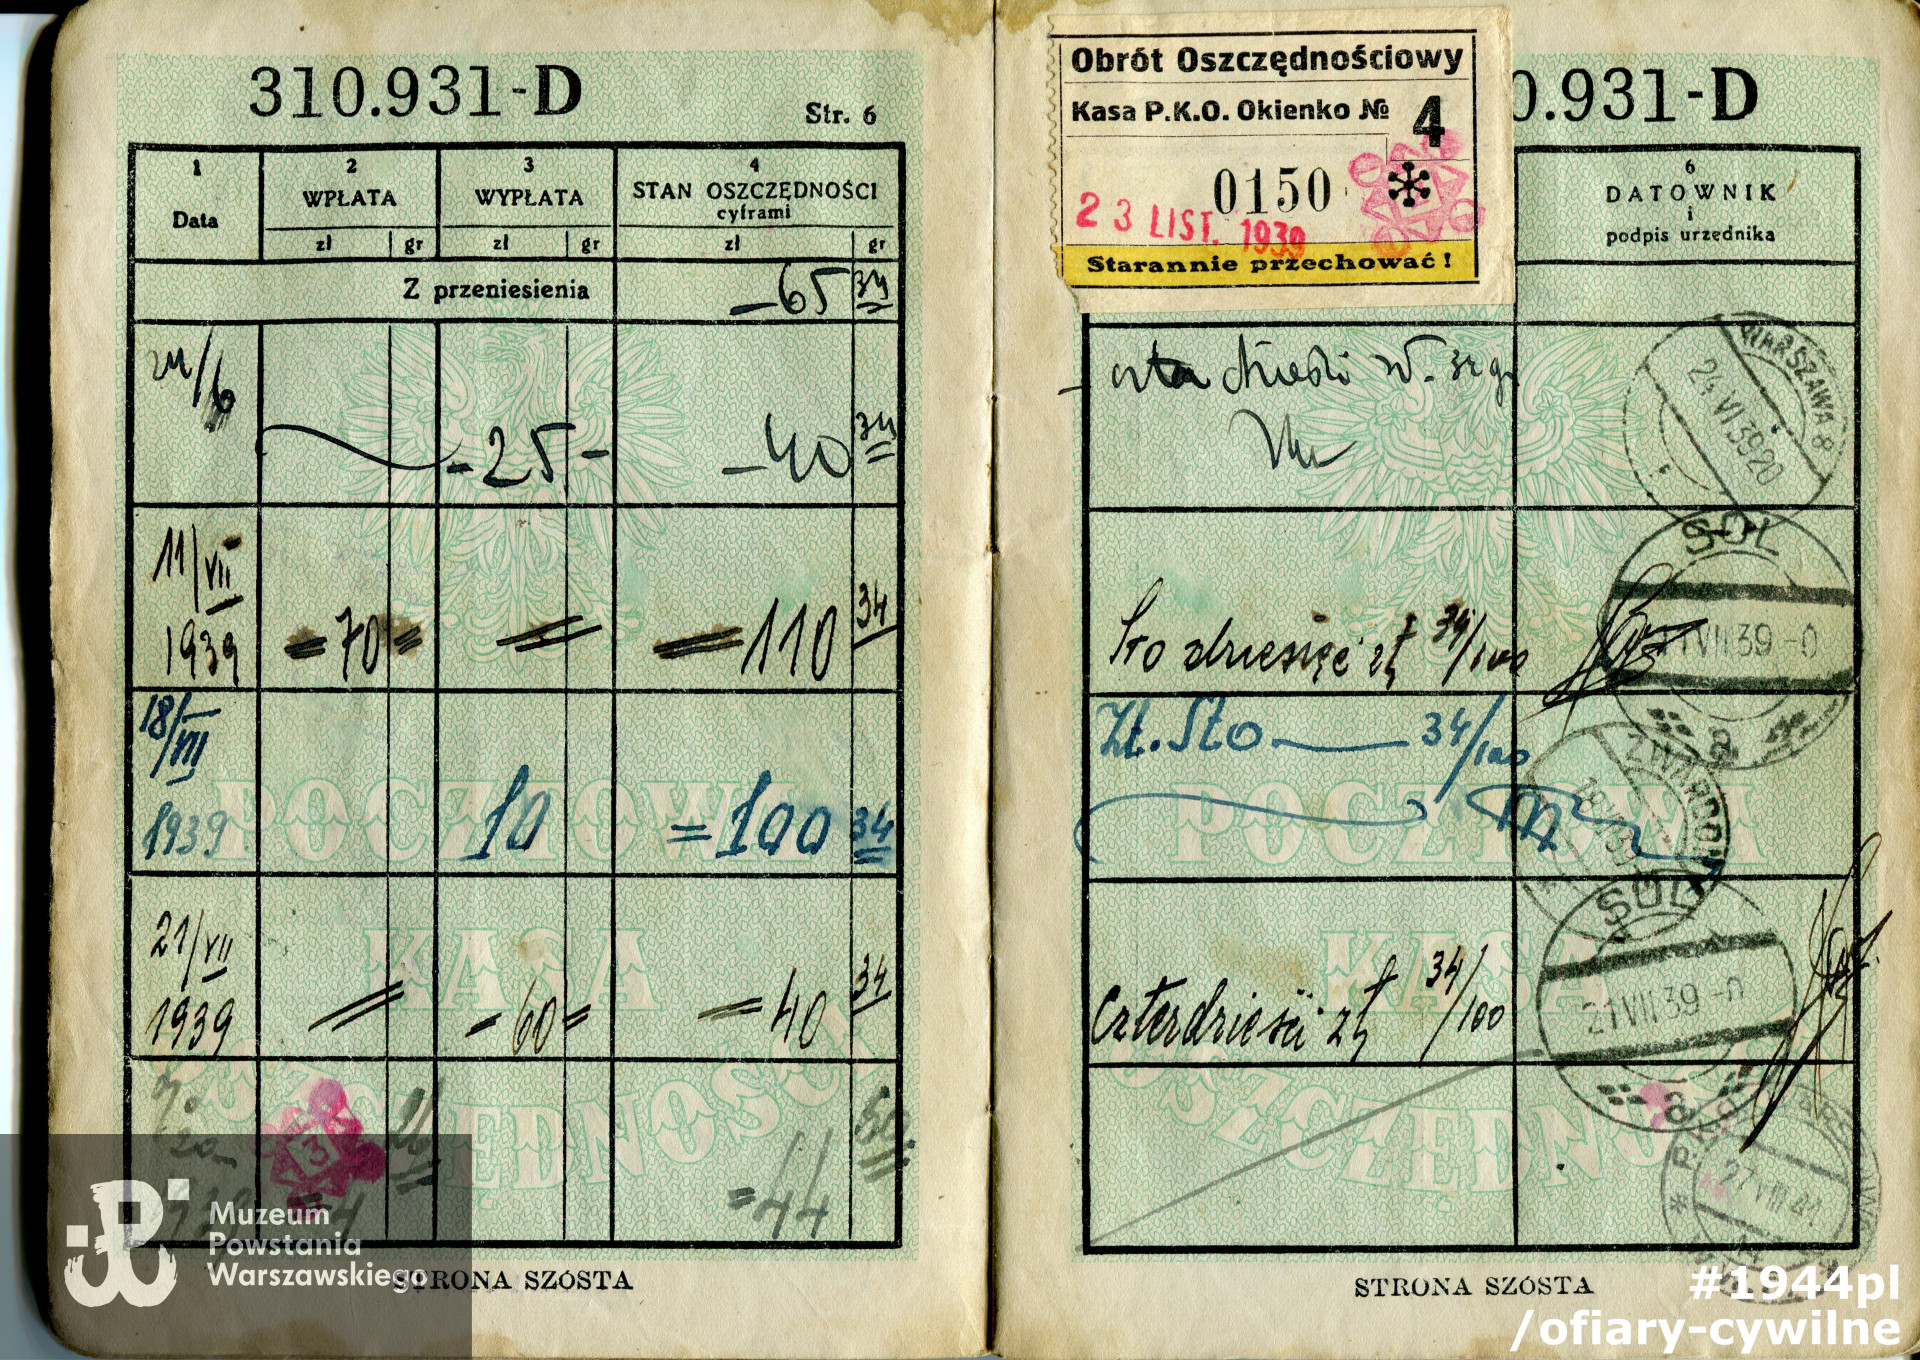 310.931-D
Str. 6
1
Data
2
WPŁATA
zł gr
3
WYPŁATA
zł gr
4
STAN OSZCZĘDNOŚCI
cyframi
zł gr
Z przeniesienia
-65 34
24/6
-25-
-40 34
11/VII
1939
=70=
=110 34
18/VII
1939
10
=100 34
21/VII
1939
-60=
=40 34
3
=4
=44 50
POCZTOWA
KASA
OSZCZĘDNOŚCI
STRONA SZÓSTA
Muzeum
Powstania
Warszawskiego
Obrót Oszczędnościowy
Kasa P.K.O. Okienko № 4
0150
23 LIST. 1939
Starannie przechować!
0.931-D
6
DATOWNIK
i
podpis urzędnika
WARSZAWA 8
24 VI 39 20
SÓL
VII 39 -0
a
Sto dziesięć zł 34/100
Zł. Sto — 34/100
ZWARDOŃ
18 VII 39
Czterdzieści zł 34/100
SÓL
21 VII 39 -0
a
27 VIII 41
POCZTOWA
KASA
OSZCZĘDNO
STRONA SZÓSTA
#1944pl
/ofiary-cywilne